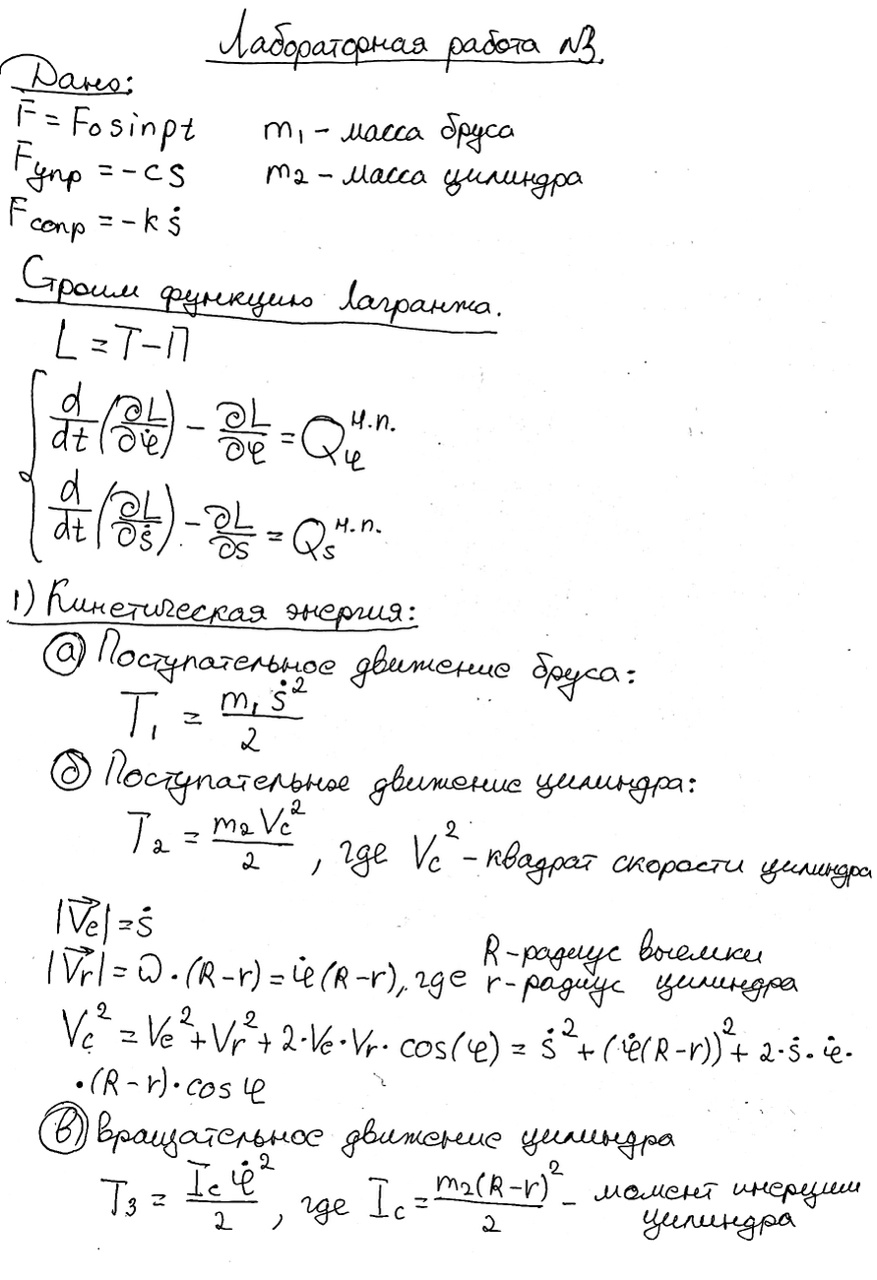 Лабораторная работа №3.
Дано:
F = F₀ sin pt    m₁ – масса бруса
Fупр = –cs    m₂ – масса цилиндра
Fсопр = –kṡ
Строим функцию Лагранжа.
L = T – П
d/dt (∂L/∂φ̇) – ∂L/∂φ = Q_φ^н.п.
d/dt (∂L/∂ṡ) – ∂L/∂s = Q_s^н.п.
1) Кинетическая энергия:
а) Поступательное движение бруса:
T₁ = m₁ṡ²/2
б) Поступательное движение цилиндра:
T₂ = m₂Vc²/2, где Vc² – квадрат скорости цилиндра
|V⃗e| = ṡ
|V⃗r| = ω·(R–r) = φ̇(R–r), где R – радиус выемки
r – радиус цилиндра
Vc² = Ve² + Vr² + 2·Ve·Vr·cos(φ) = ṡ² + (φ̇(R–r))² + 2·ṡ·φ̇·
·(R–r)·cos φ
в) вращательное движение цилиндра
T₃ = Icφ̇²/2, где Ic = m₂(R–r)²/2 – момент инерции
цилиндра